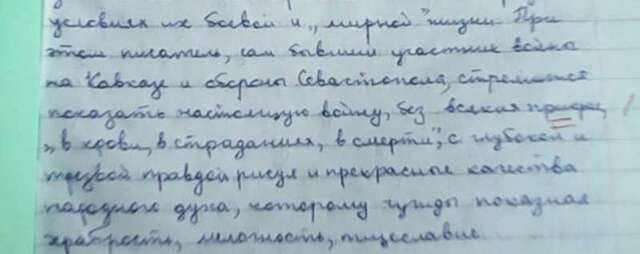 условиях их боевой и "мирной" жизни. При
этом писатель, сам бывший участник войны
на Кавказе и обороны Севастополя, стремится
показать настоящую войну, без всяких прикрас,
"в крови, в страданиях, в смерти", с глубокой и
трезвой правдой рисуя и прекрасные качества
народного духа, которому чужды показная
храбрость, мелочность, тщеславие.